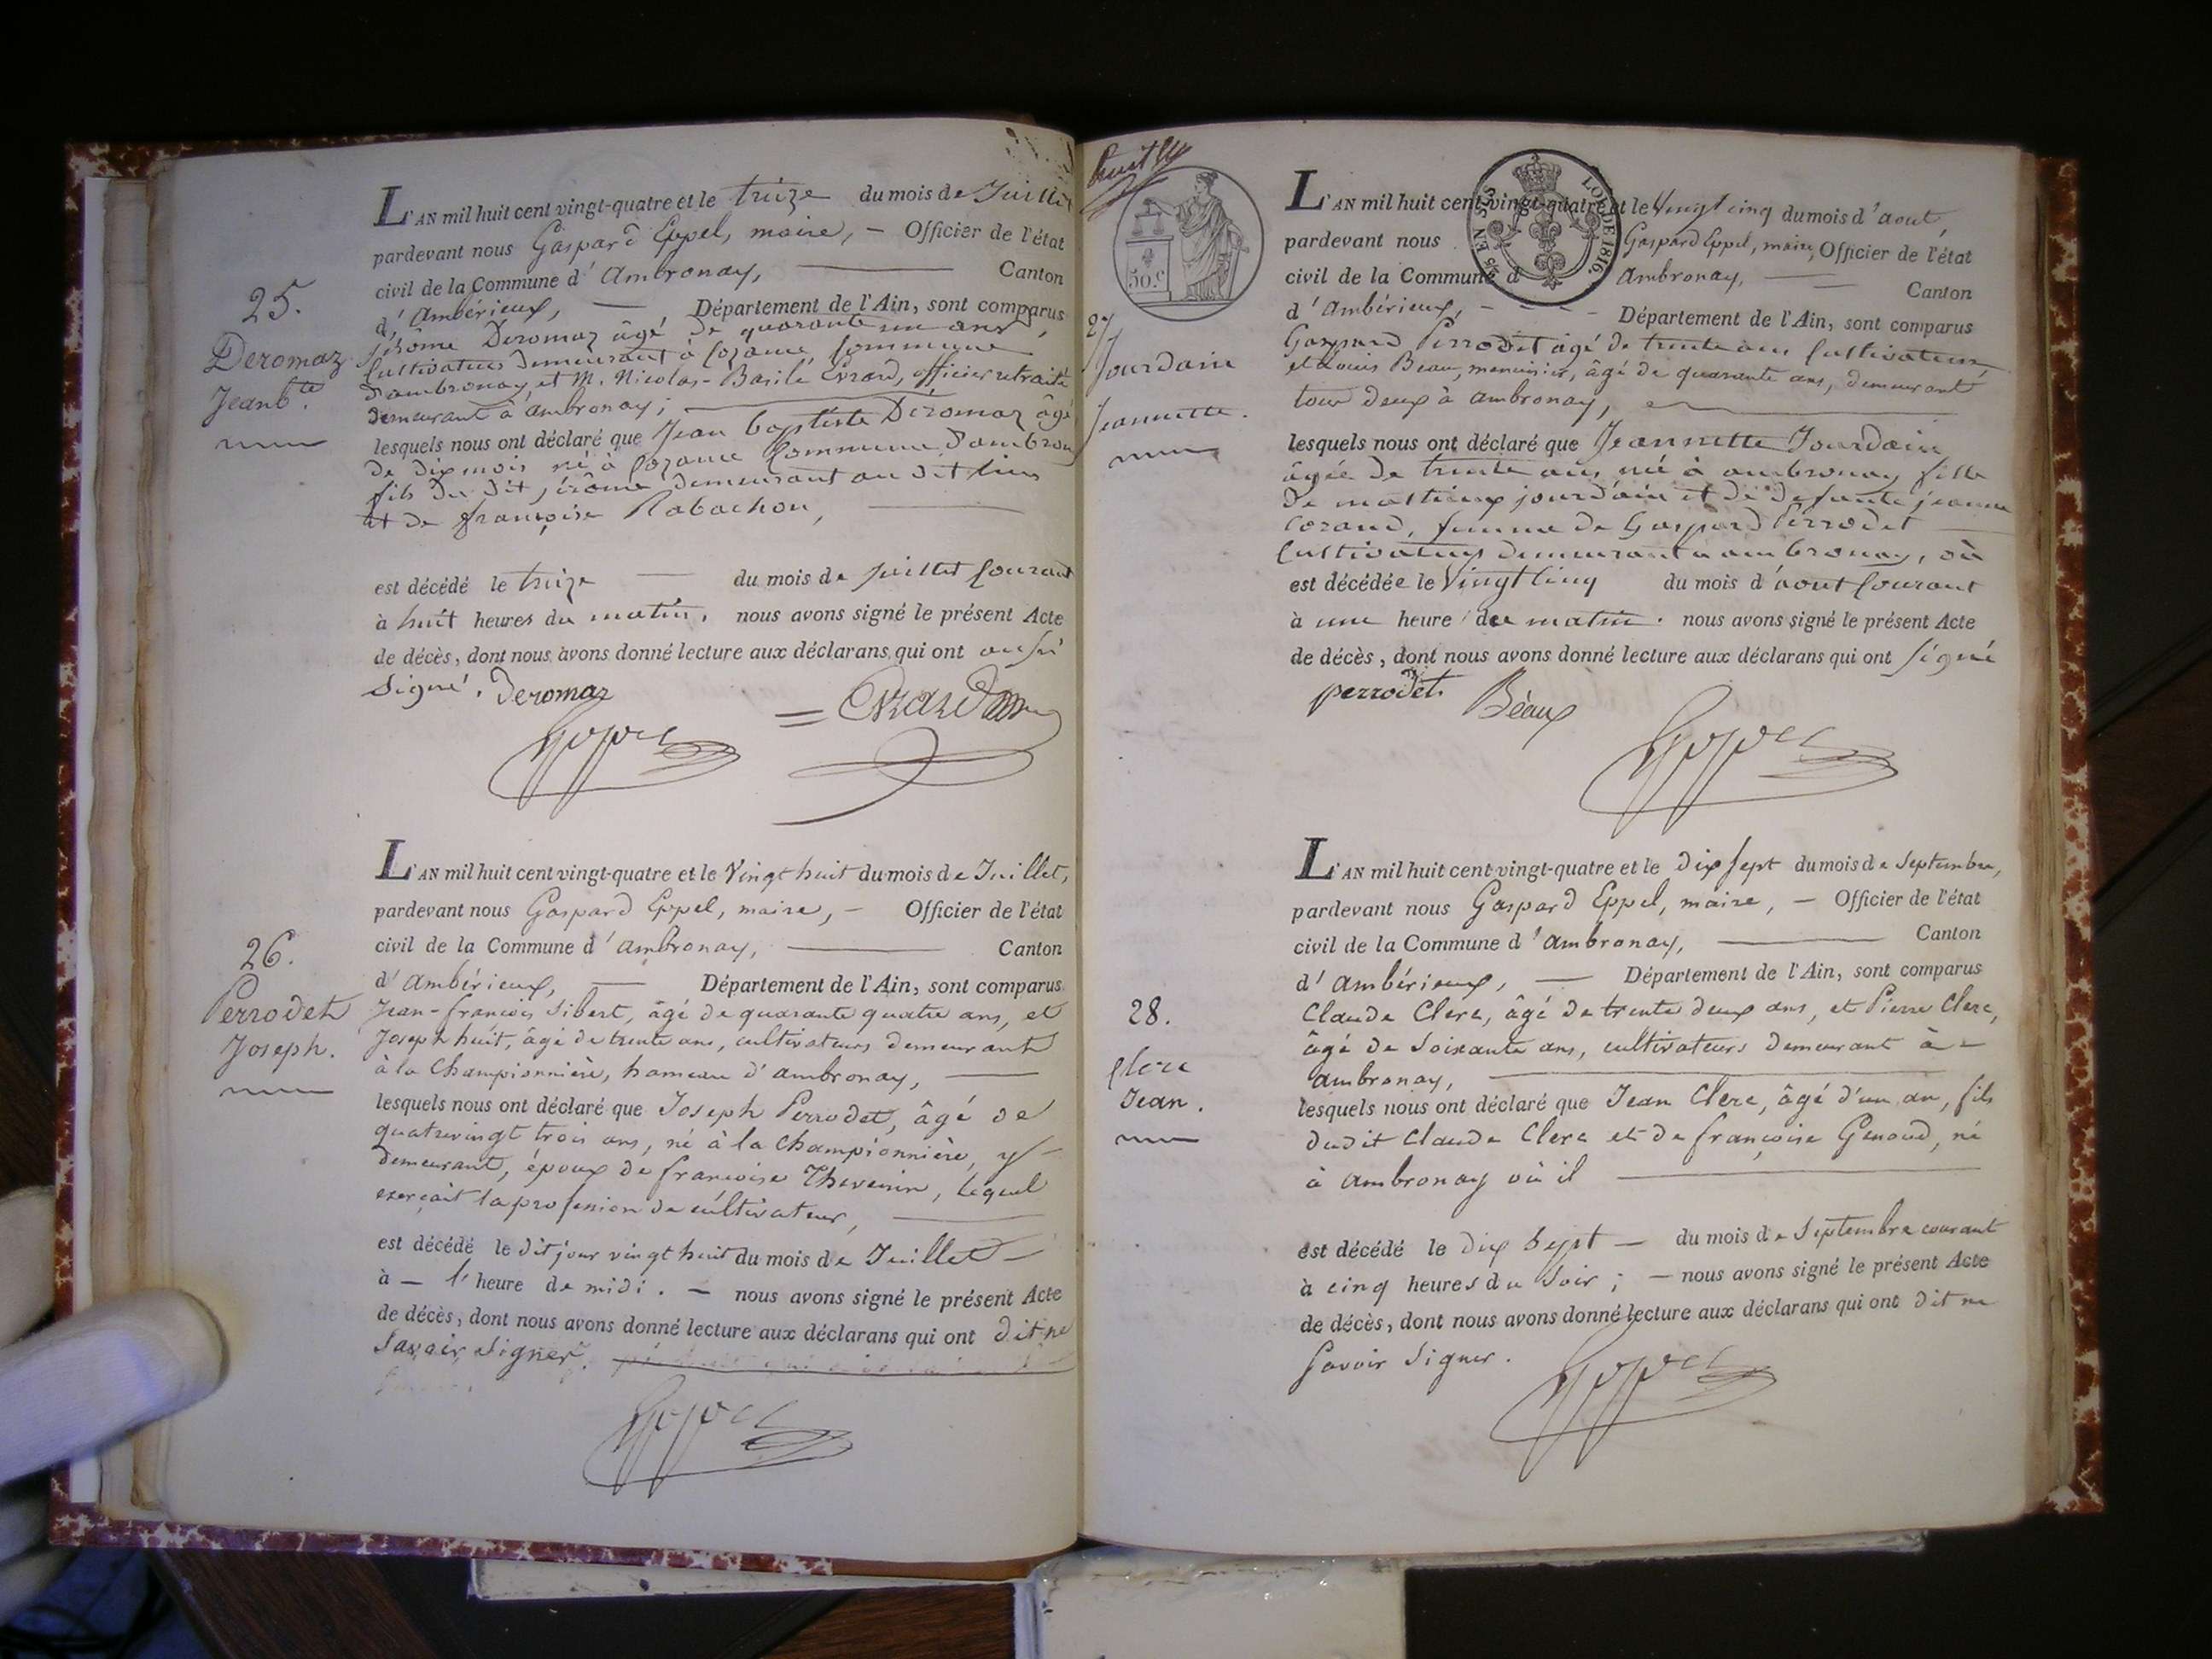 25.
Deromaz
Jean b.te
L'AN mil huit cent vingt-quatre et le treize du mois de Juillet
pardevant nous Gaspard Eppel, maire, — Officier de l'état
civil de la Commune d'ambronay, Canton
d'ambérieux, — Département de l'Ain, sont comparus
jérôme Deromaz âgé de quarante un ans,
Cultivateur demeurant à Cozance, Commune
d'ambronay et M. Nicolas-Basile Evrard, officier retraité
demeurant à ambronay;
lesquels nous ont déclaré que Jean baptiste Déromaz âgé
de dix mois né à Cozance Commune d'ambronay
fils du dit jérôme demeurant au dit lieu
et de françoise Rabachon,
est décédé le treize — du mois de juillet Courant
à huit heures du matin, nous avons signé le présent Acte
de décès, dont nous avons donné lecture aux déclarans qui ont aussi
signé. Deromaz
Evrard
Eppel
26.
Perrodet
Joseph.
L'AN mil huit cent vingt-quatre et le Vingt huit du mois de Juillet,
pardevant nous Gaspard Eppel, maire, — Officier de l'état
civil de la Commune d'ambronay, Canton
d'ambérieux, — Département de l'Ain, sont comparus
Jean-françois Sibert, âgé de quarante quatre ans, et
Joseph huit, âgé de trente ans, cultivateurs demeurant
à la Championnière, hameau d'ambronay,
lesquels nous ont déclaré que Joseph Perrodet, âgé de
quatrevingt trois ans, né à la Championnière, y
demeurant, époux de françoise Thevenin, lequel
exerçait la profession de cultivateur,
est décédé le dit jour vingt huit du mois de Juillet —
à — l'heure de midi. — nous avons signé le présent Acte
de décès, dont nous avons donné lecture aux déclarans qui ont dit ne
Savoir Signer.
Eppel
50.c
27
Jourdain
Jeannette.
25 EN SUS
LOI DE 1816.
L'AN mil huit cent vingt-quatre et le Vingt cinq du mois d'aout,
pardevant nous Gaspard Eppel, maire, Officier de l'état
civil de la Commune d ambronay, — Canton
d'ambérieux, - - - Département de l'Ain, sont comparus
Gaspard Perrodet agé de trente ans Cultivateur,
et Louis Beau, menuisier, âgé de quarante ans, demeurant
tous deux à ambronay,
lesquels nous ont déclaré que Jeannette Jourdain
âgée de trente ans, née à ambronay fille
de mathieux jourdain et de defunte jeanne
Cozand, femme de Gaspard Perrodet
Cultivateur demeurant a ambronay, où
est décédée le Vingt Cinq du mois d'aout Courant
à une heure du matin. nous avons signé le présent Acte
de décès, dont nous avons donné lecture aux déclarans qui ont signé
perrodet.
Béaux
Eppel
28.
Clerc
Jean.
L'AN mil huit cent vingt-quatre et le dix sept du mois de Septembre,
pardevant nous Gaspard Eppel, maire, — Officier de l'état
civil de la Commune d'ambronay, Canton
d'ambérieux, — Département de l'Ain, sont comparus
Claude Clerc, âgé de trente deux ans, et Pierre Clerc,
âgé de Soixante ans, cultivateurs demeurant à
ambronay,
lesquels nous ont déclaré que Jean Clerc, âgé d'un an, fils
dudit Claude Clerc et de françoise Genoud, né
à ambronay où il
est décédé le dix sept — du mois de Septembre courant
à cinq heures du Soir; — nous avons signé le présent Acte
de décès, dont nous avons donné lecture aux déclarans qui ont dit ne
Savoir Signer.
Eppel